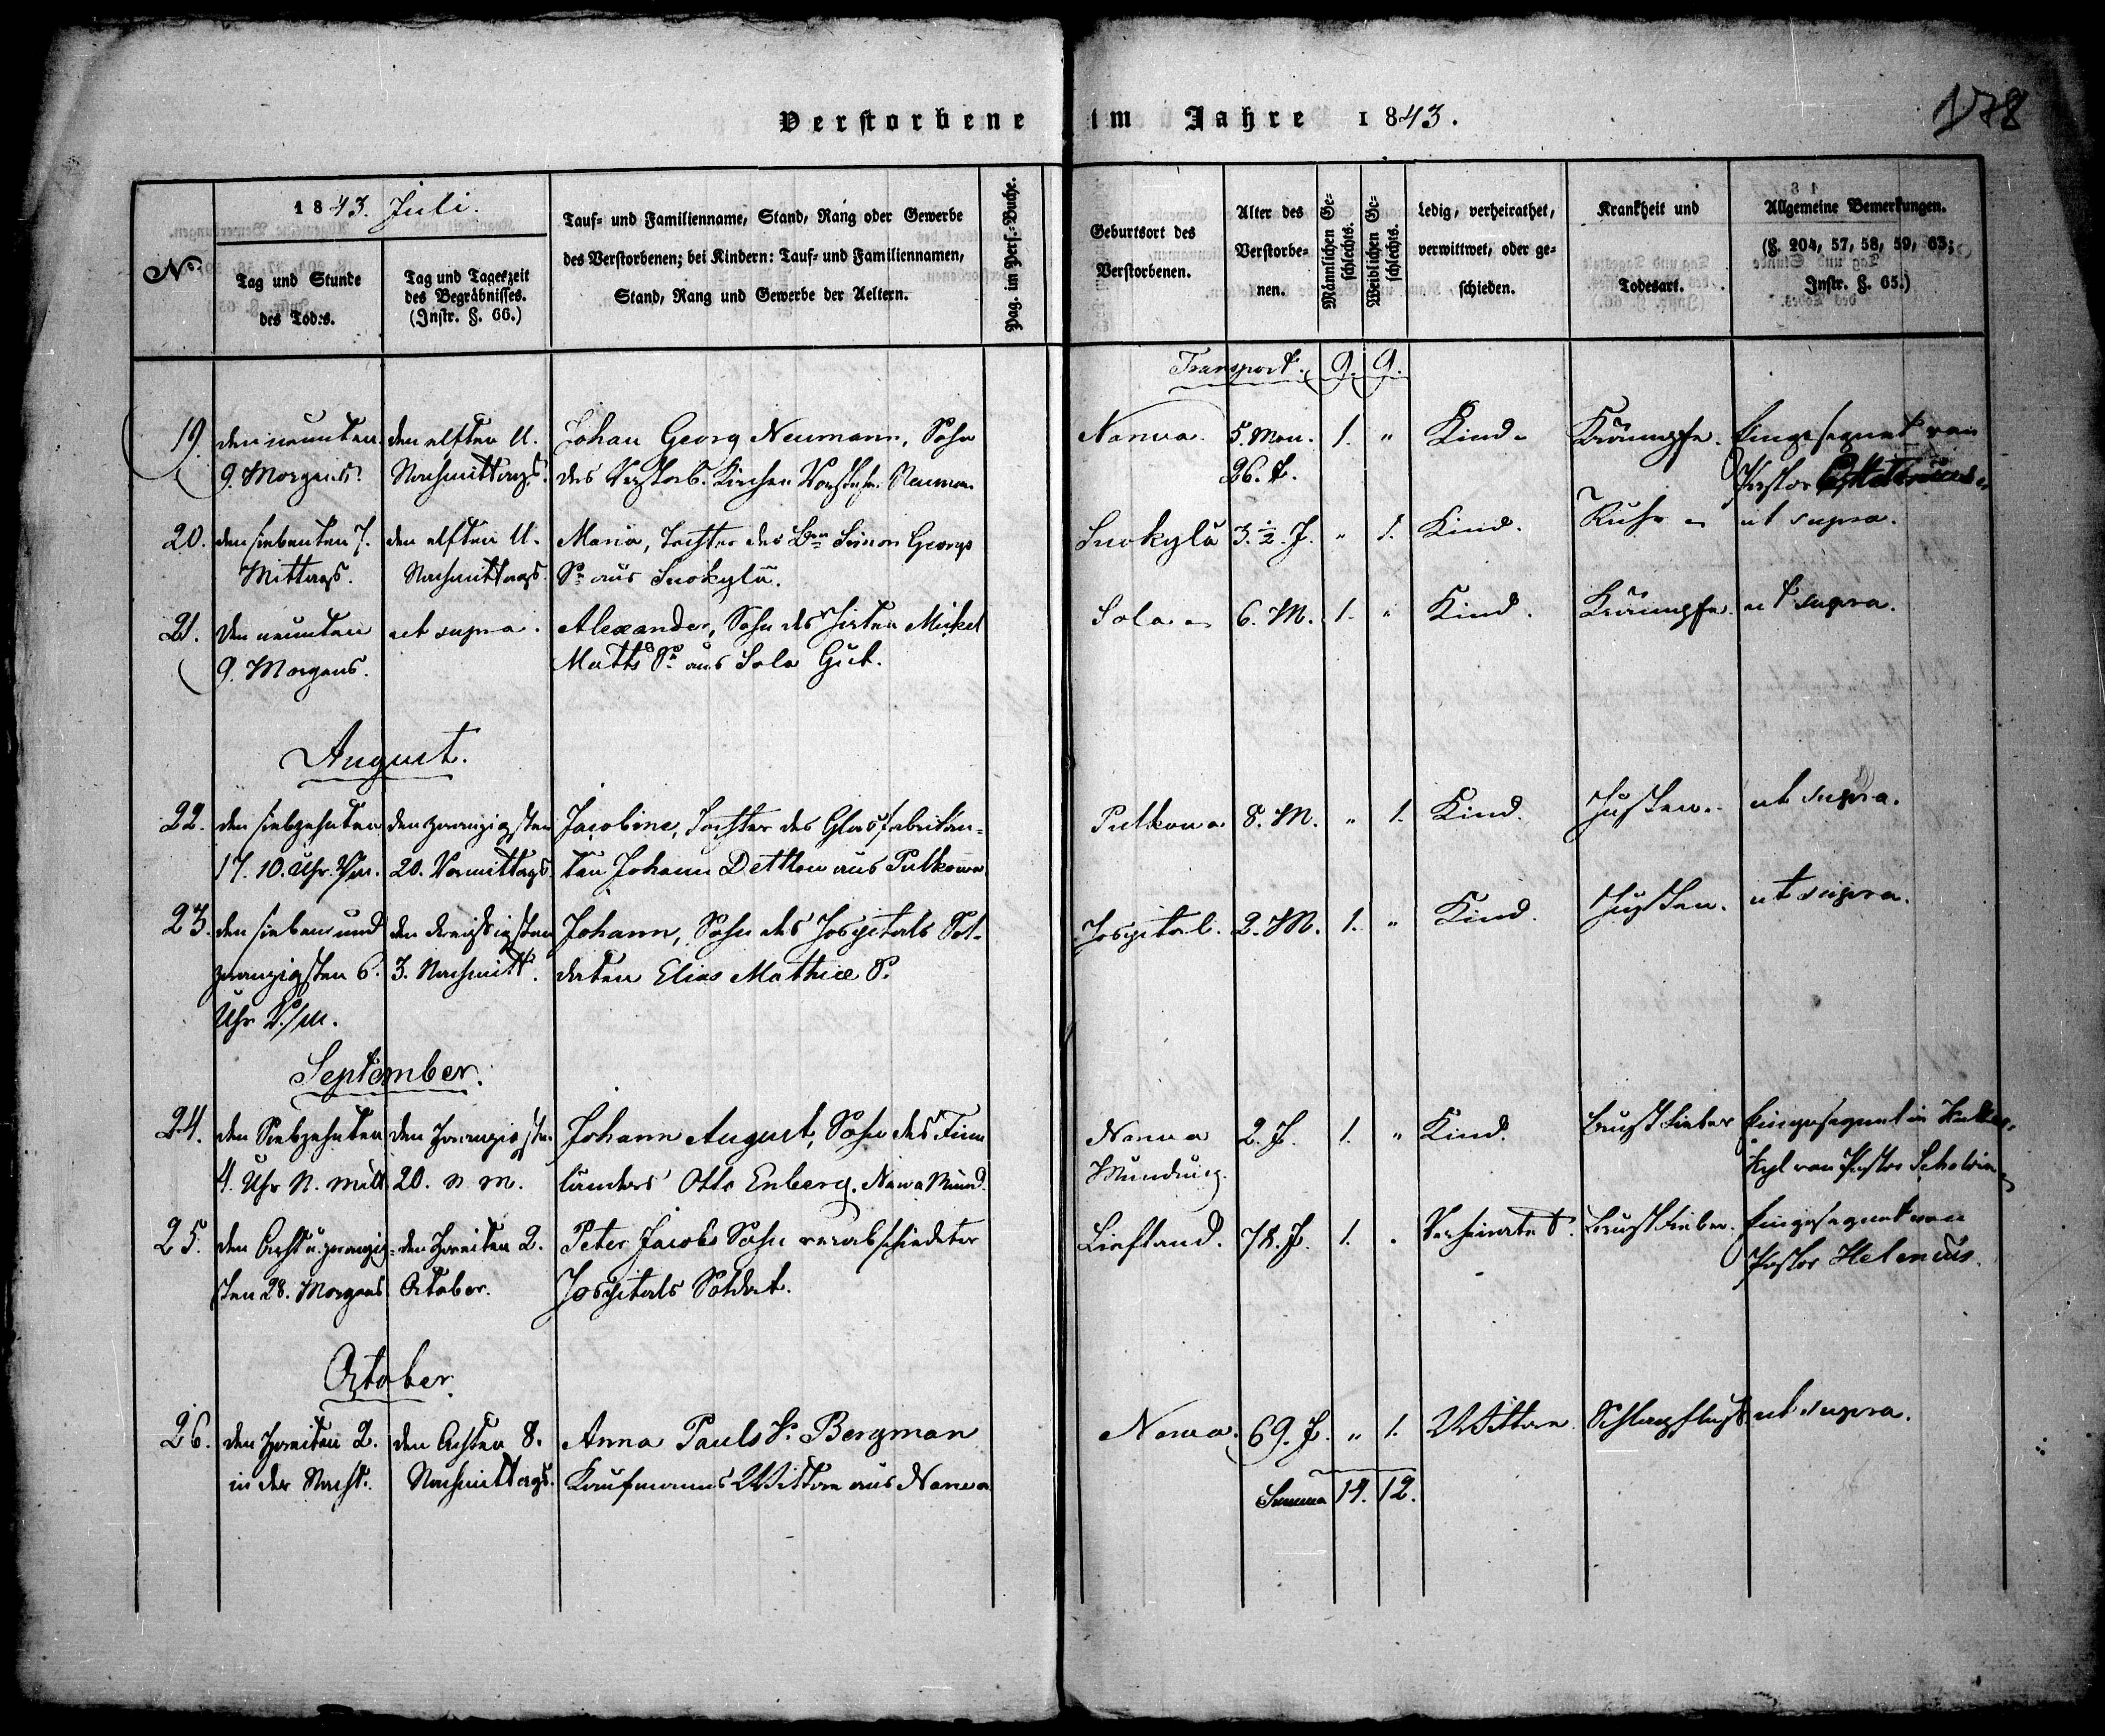 Verstorbene im Jahre 1843.
178
No.
1843. Juli.
Tag und Stunde
des Todes.
Tag und Tageszeit
des Begräbnisses.
(Instr. §. 66.)
Tauf- und Familienname, Stand, Rang oder Gewerbe
des Verstorbenen; bei Kindern: Tauf- und Familiennamen,
Stand, Rang und Gewerbe der Aeltern.
Pag. im Pers.-Buche.
Geburtsort des
Verstorbenen.
Alter des
Verstorbe-
nen.
Männlichen Ge-
schlechts.
Weiblichen Ge-
schlechts.
Ledig, verheirathet,
verwittwet, oder ge-
schieden.
Krankheit und
Todesart.
Allgemeine Bemerkungen.
(§. 204, 57, 58, 59, 63;
Instr. §. 65.)
Transport. 9. 9.
19. den neunten den elften 11. Johan Georg Neumann, Sohn Narwa. 5. Mon. 1. " Kind. Krämpfe. Eingesegnet von
9. Morgens. Nachmittags. des Verstorb. Kirchen Vorstehr. Neuman 26. t. Pastor
20. den siebenten 7. den elften 11. Maria, Tochter des Simon Georgs 3. ½. J. " 1. Kind. Ruhr ut supra.
Mittags. Nachmittags. Sn aus
21. den neunten ut supra. Alexander, Sohn des Hirten Mickel Sola 6. M. 1. " Kind. Krämpfe. ut supra.
9. Morgens. Matts Sn aus Sola Gut.
August.
22. den siebzehnten den zwanzigsten Jacobine, Tochter des Glasfabrikan- Pulkowa 8. M. " 1. Kind. Husten. ut supra.
17. 10. Uhr V/m. 20. Vormittags. ten Johann Dettlow aus Pulkowa
23. den sieben und den dreißigsten Johann, Sohn des Hospitals Sol- Hospital. 2. M. 1. " Kind. Husten. ut supra.
zwanzigsten 6. 3. Nachmitt. daten Elias Mathiæ S.
Uhr
September.
24. den Siebzehnten den Zwanzigsten Johann August, Sohn des Finn Narwa 2. J. 1. " Kind. Brustfieber Eingesegnet in
4. Uhr N. mitt 20. N. M. länders Otto Enberg. Narwa Münd. Mündung. von Pastor
25. den Acht u. zwanzig- den Zweiten 2. Peter Jacobs Sohn verabschiedeter Liefland. 78. J. 1. " Verheiratet. Brustfieber. Eingesegnet von
sten 28. Morgens October. Hospitals Soldat. Pastor Helenius.
October.
26. den Zweiten 2. den Achten 8. Anna Pauls T. Bergman Narwa. 69. J. " 1. Wittwe. Schlagfluß. ut supra.
in der Nacht. Nachmittags. Kaufmanns Wittwe aus Narwa
Summa 14. 12.